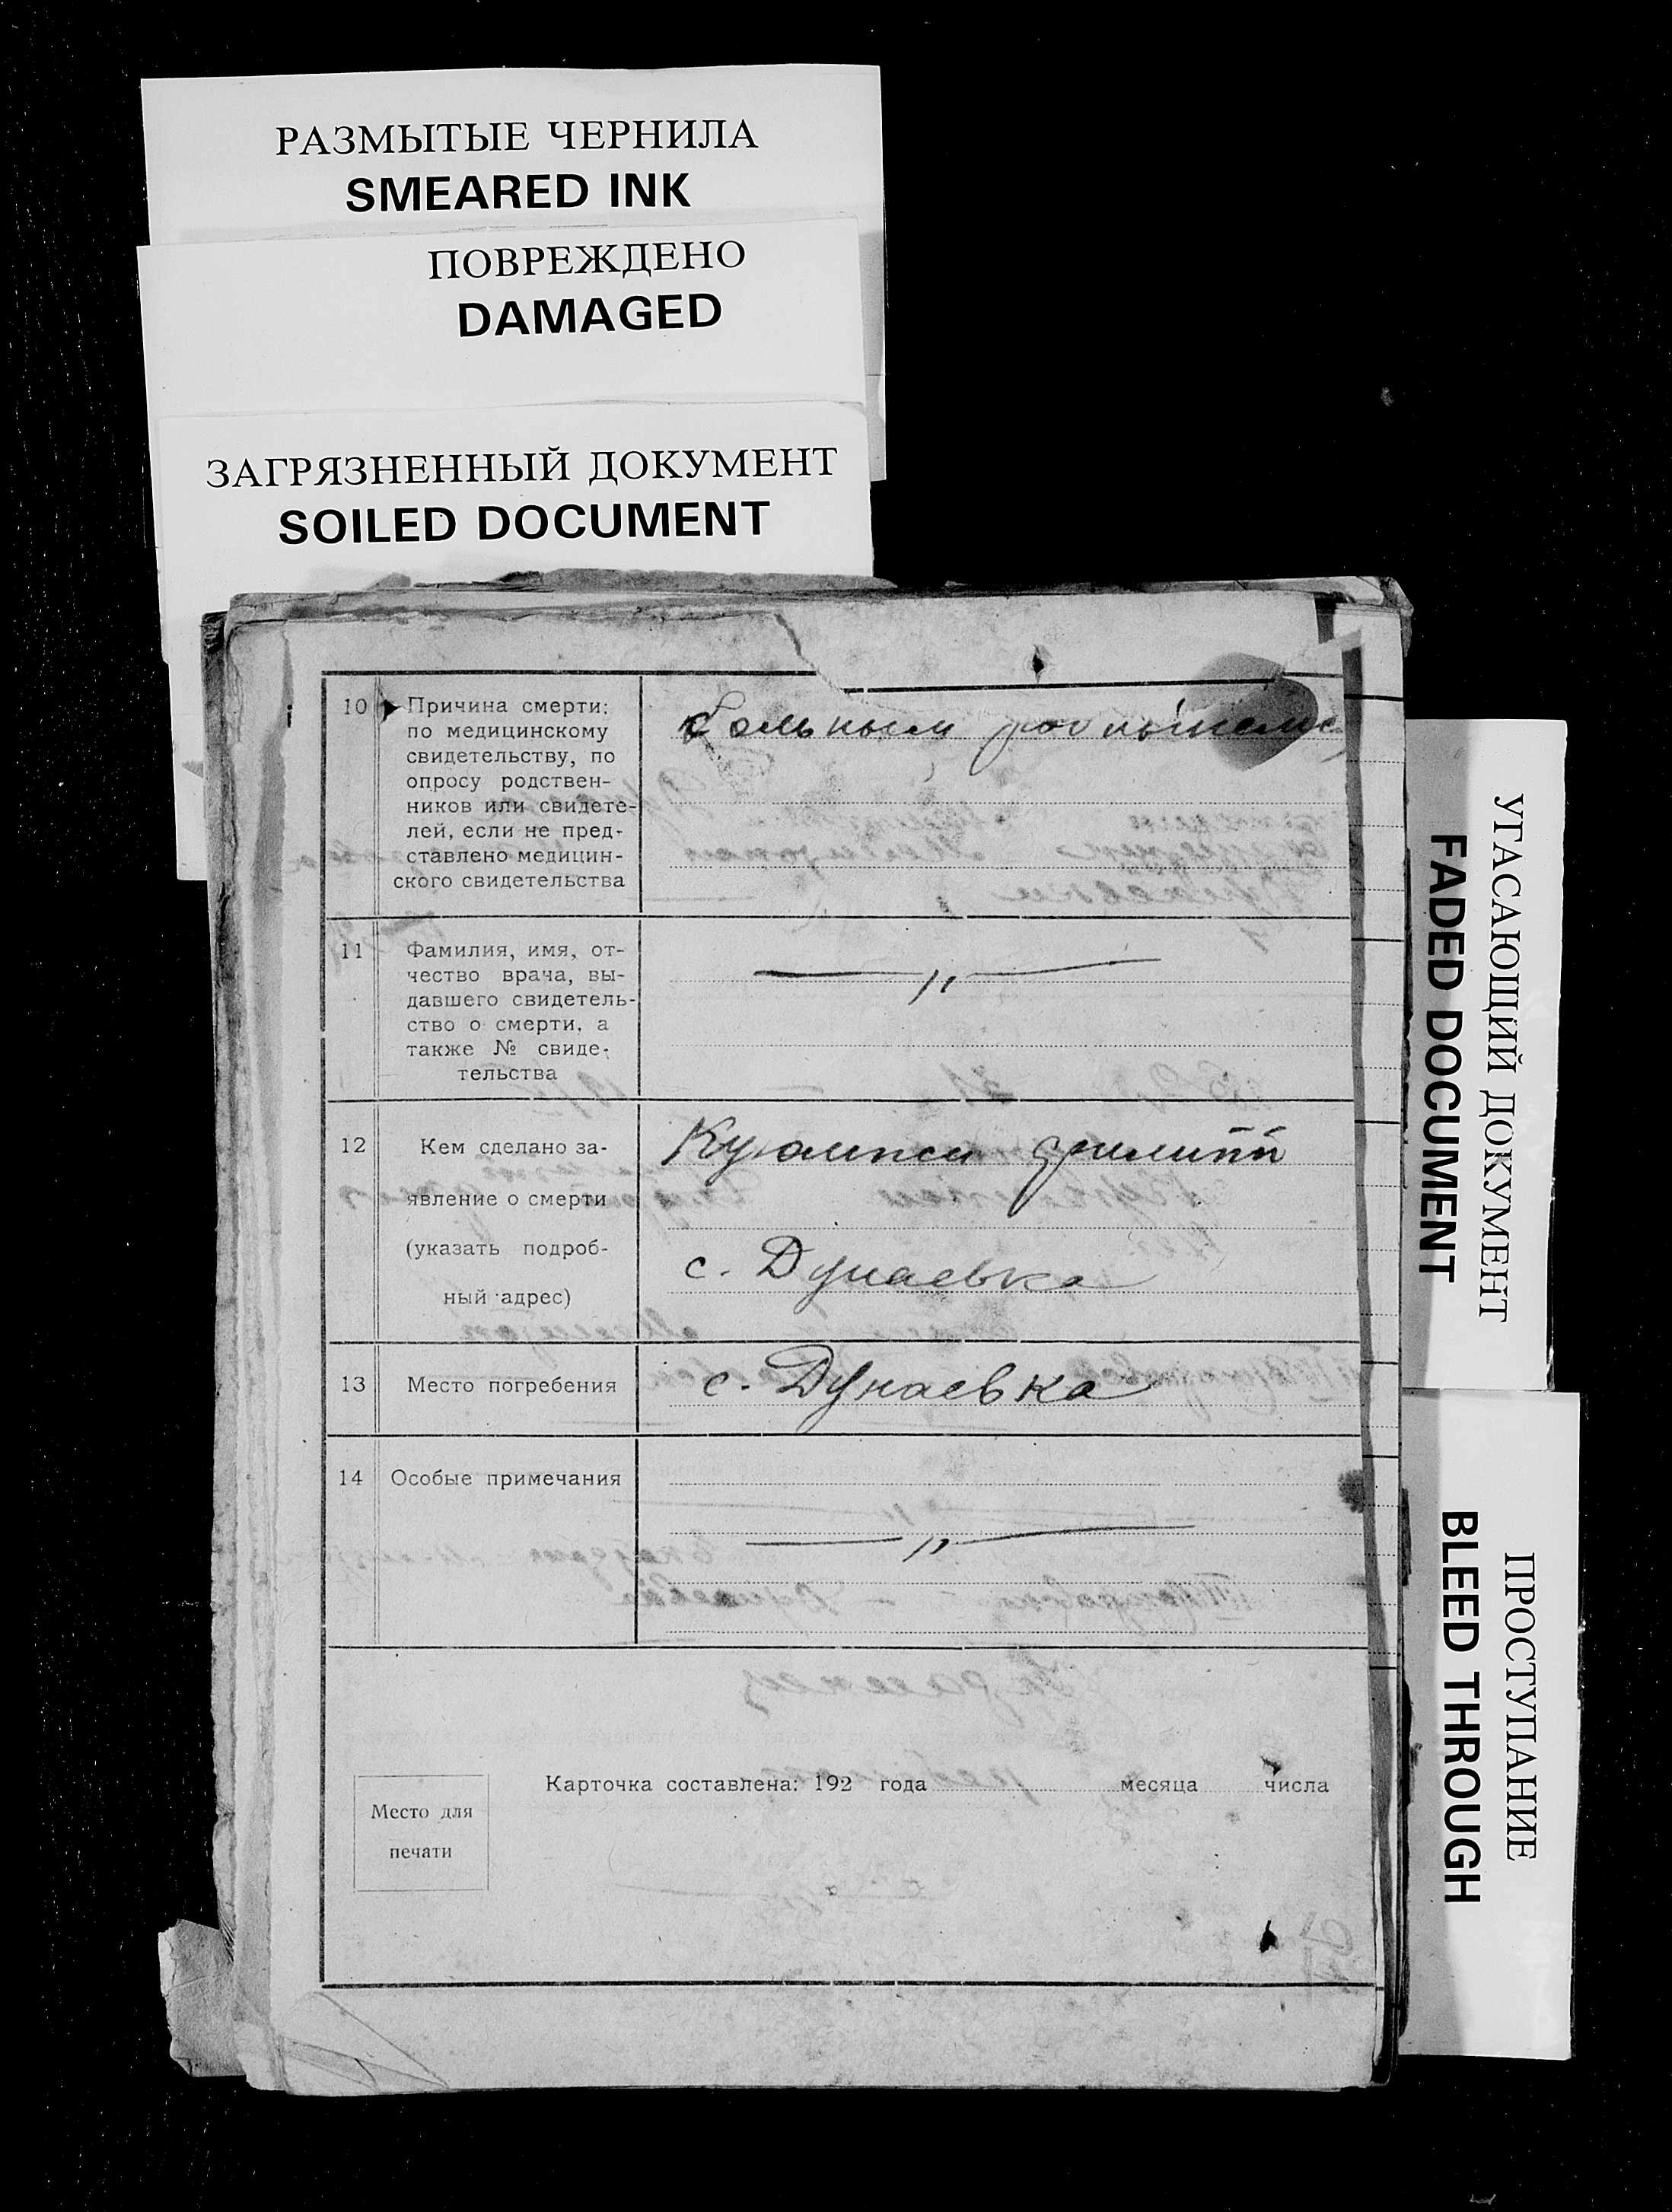 РАЗМЫТЫЕ ЧЕРНИЛА
SMEARED INK
ПОВРЕЖДЕНО
DAMAGED
ЗАГРЯЗНЕННЫЙ ДОКУМЕНТ
SOILED DOCUMENT
10
Причина смерти:
по медицинскому
свидетельству, по
опросу родствен-
ников или свидете-
лей, если не пред-
ставлено медицин-
ского свидетельства
11
Фамилия, имя, от-
чество врача, вы-
давшего свидетель-
ство о смерти, а
также № свиде-
тельства
— " —
12
Кем сделано за-
явление о смерти
(указать подроб-
ный адрес)
с. Дунаевка
13
Место погребения
с. Дунаевка
14
Особые примечания
— " —
Карточка составлена: 192 года месяца числа
Место для
печати
УГАСАЮЩИЙ ДОКУМЕНТ
FADED DOCUMENT
ПРОСТУПАНИЕ
BLEED THROUGH